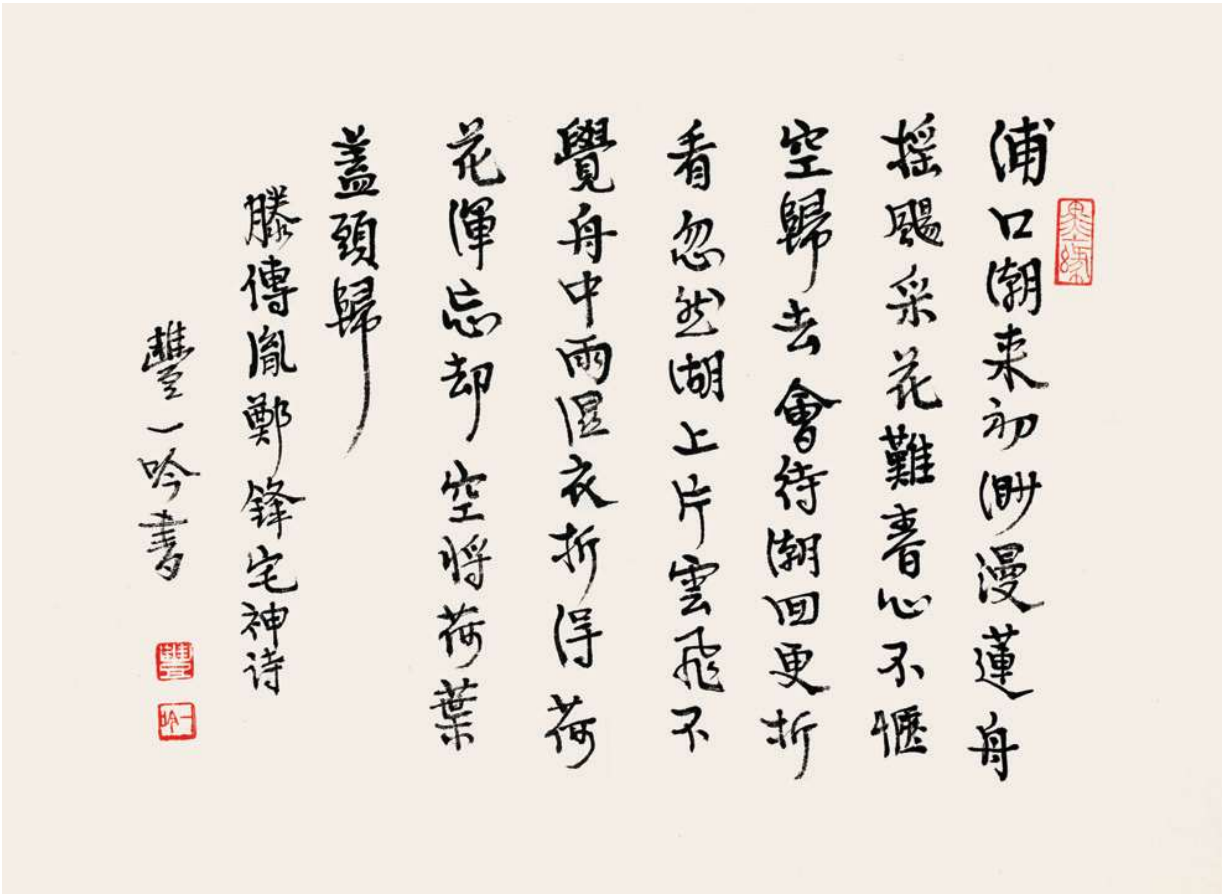 墨緣
浦口潮来初渺漫蓮舟
摇颺采花難春心不愜
空歸去會待潮回更折
看忽然湖上片雲飛不
覺舟中雨湿衣折得荷
花渾忘却空将荷葉
蓋頭歸
滕傳胤鄭鋒宅神诗
豐一吟書
豐
一吟